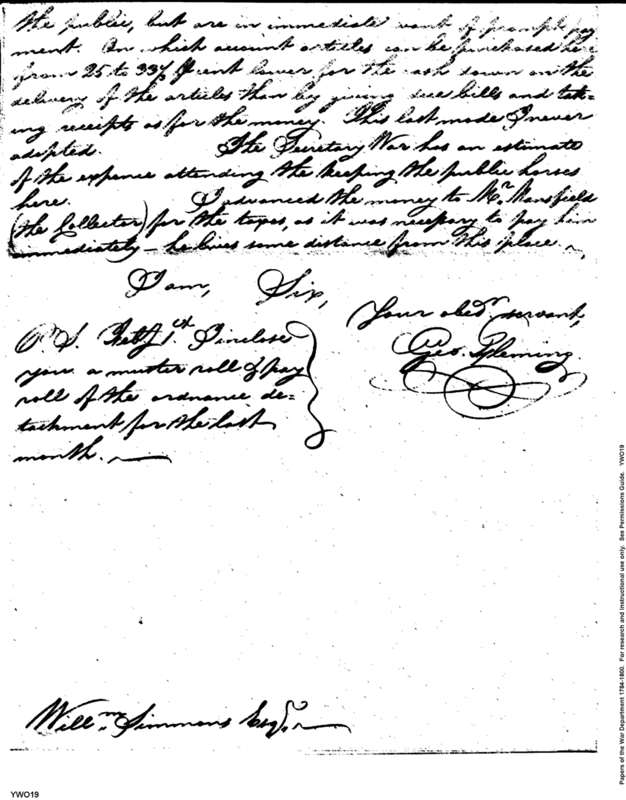 the public, but are in immediate want of prompt pay
ment. On which account articles can be purchased here
from 25 to 33⅓ ℔ cent lower for the cash down on the
delivery of the articles than by giving due bills and tak=
ing receipts as for the money. This last mode I never
adopted. The Secretary War has an estimate
of the expence attending the keeping the public horses
here. I advanced the money to Mr. Mansfield
(the Collector) for the taxes, as it was necessary to pay him
immediately — he lives some distance from this place.
I am, Sir,
Your obedt. servant,
Geo. Fleming
P. S. Feby. 1st. I inclose
you a muster roll & pay
roll of the ordnance de=
tachment for the last
month.
Willm. Simmons Esqr.
YWO19
Papers of the War Department 1784-1800. For research and instructional use only. See Permissions Guide. YWO19